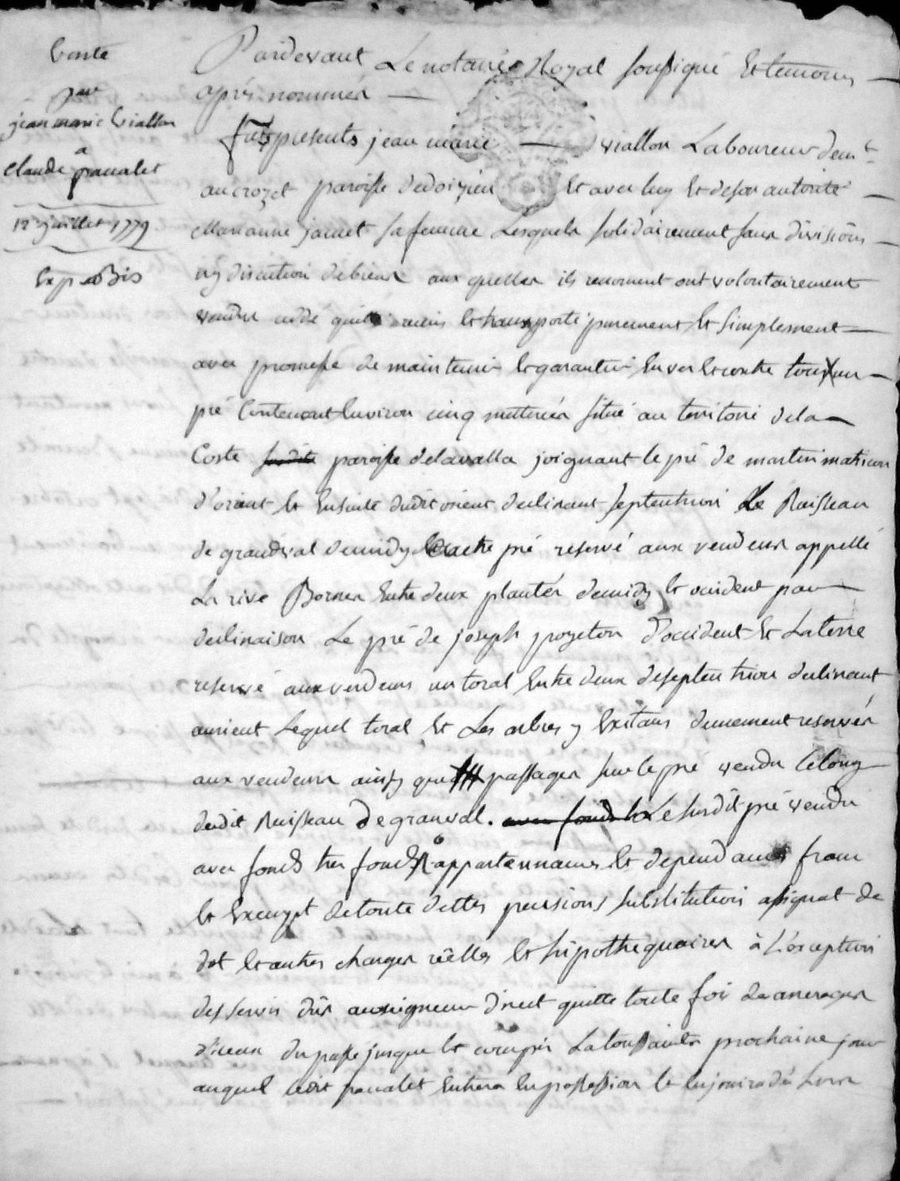 Vente
par
jean marie Viallon
a
Claude pravalet
12e juillet 1779
Exp Bis
Pardevant Le notaire Royal soussigné Et temoins
après nommés
furent presents jean marie viallon Laboureur demt
au crozet paroisse de doizieu Et avec luy Et de son autorité
Marianne jamet sa femme Lesquels solidairement sans division
ny discution de biens auxquelles ils renoncent ont volontairement
vendu cedé quitté remis Et transporté purement Et simplement
avec promesse de maintenir Et garantir Envers Et contre tous un
pré Contenant Environ cinq metterées situé au territoire de la
Coste susdite paroisse de lavalla joignant le pré de martin matricon
d'orient Et Ensuite dudit orient declinant septentrion Le Ruisseau
de grandval de midy autre pré reservé aux vendeurs appellé
La rive Bornes Entre deux plantés de midy Et occident par
declinaison Le pré de joseph poyeton d'occident Et La terre
reservé aux vendeurs un toral Entre deux de septentrion declinant
a orient Lequel toral Et Les arbres y Exitans demeurent reservés
aux vendeurs ainsy que passages sur le pré vendu le long
dudit Ruisseau De granval. avec fonds Le susdit pré vendu
avec fonds tres fonds appartennances Et dependances franc
Et Exempt de toute dettes pensions substitution assignat de
dot Et autres charges réelles Et hipothequaires à L'exception
des servis dûs au seigneur direct quitte toute fois des arrerages
d'iceux du passé jusque Et compris La toussaints prochaine jour
auquel ledit pravalet Entrera En possession Et En jouira dès Lors